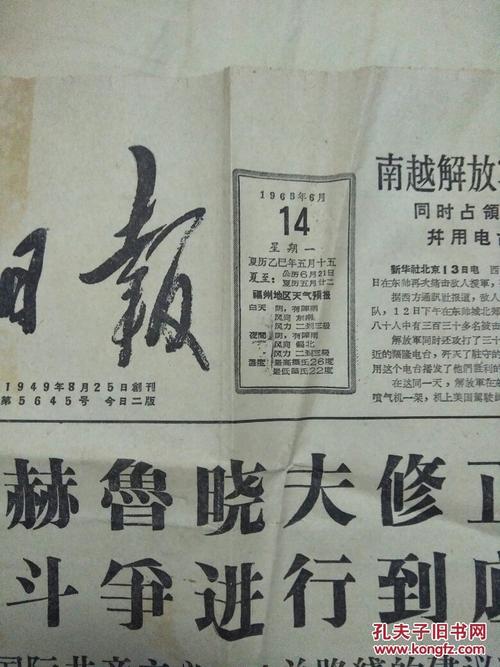 日報
1949年8月25日創刊
第5645号 今日二版
1965年6月
14
星期一
夏历乙巳年五月十五
夏至：公历6月21日
夏历五月廿二
福州地区天气预报
白天 阴，有阵雨
风向 东南
风力 二到三级
夜間 阴，有阵雨
风向 偏北
风力 二到三级
溫度 最高攝氏26度
最低攝氏22度
南越解放军
同时占領
幷用电台
新华社北京13日电 西
日在东帅再次痛击敌人援軍，
据西方通訊社报道，敌人
队，12日下午在东帅城北郊
八十人中有三百三十多名被击
解放軍同时还攻打了三十
近的頻隆电台，歼灭了駐守的
用这个电台播发了他們胜利的
在这同一天，解放軍在
喷气机一架，机上美国駕駛
赫魯晓夫修正
斗爭进行到底
国际共产主义
孔夫子旧书网
kongfz.com